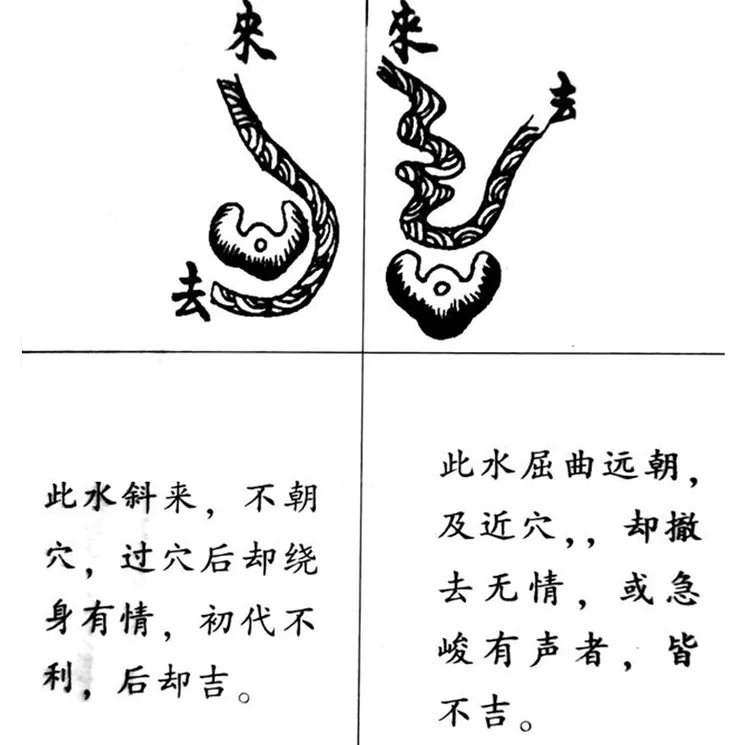 来
去
此水斜来，不朝
穴，过穴后却绕
身有情，初代不
利，后却吉。
來
去
此水屈曲远朝，
及近穴，，却撤
去无情，或急
峻有声者，皆
不吉。